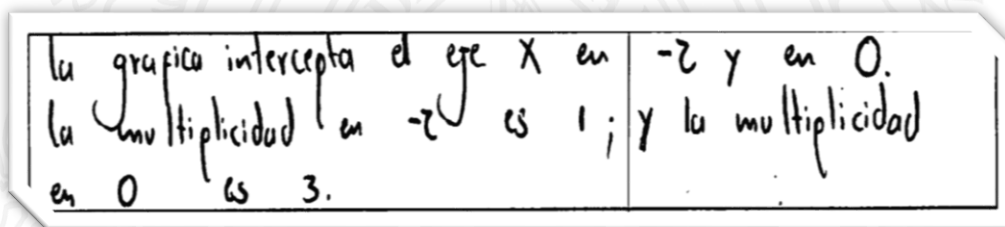 la grafica intercepta el eje X en -2 y en 0.
la multiplicidad en -2 es 1; y la multiplicidad
en 0 es 3.